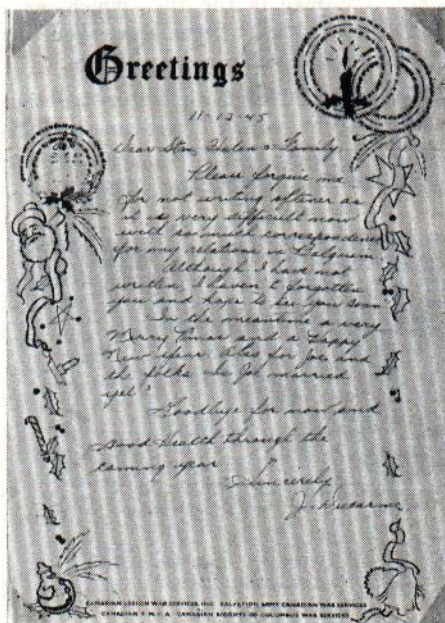 Greetings
11-12-45
Dear Stan, Helen & Family
Please forgive me
for not writing oftener as
it is very difficult now
with so much correspondence
for my relation in Belgium
Although I have not
written I haven't forgotten
you and hope to see you soon
In the meantime a very
Merry Xmas and a Happy
New Year. Also for Joe and
the folks. Is Joe married
yet?
Goodbye for now and
Good Health through the
coming year
Sincerely,
J.
CANADIAN LEGION WAR SERVICES INC. SALVATION ARMY CANADIAN WAR SERVICES
CANADIAN Y.M.C.A. CANADIAN KNIGHTS OF COLUMBUS WAR SERVICES